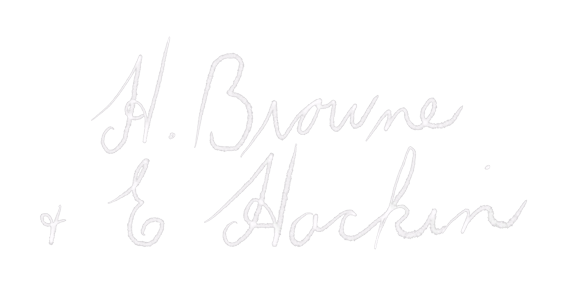 H. Browne
& E Hockin